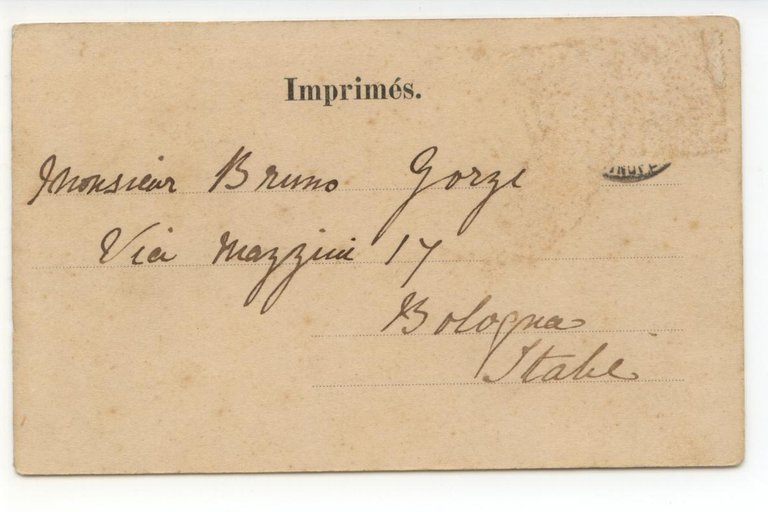 Imprimés.
Monsieur Bruno Gorzi
Via Mazzini 17
Bologna
Italie